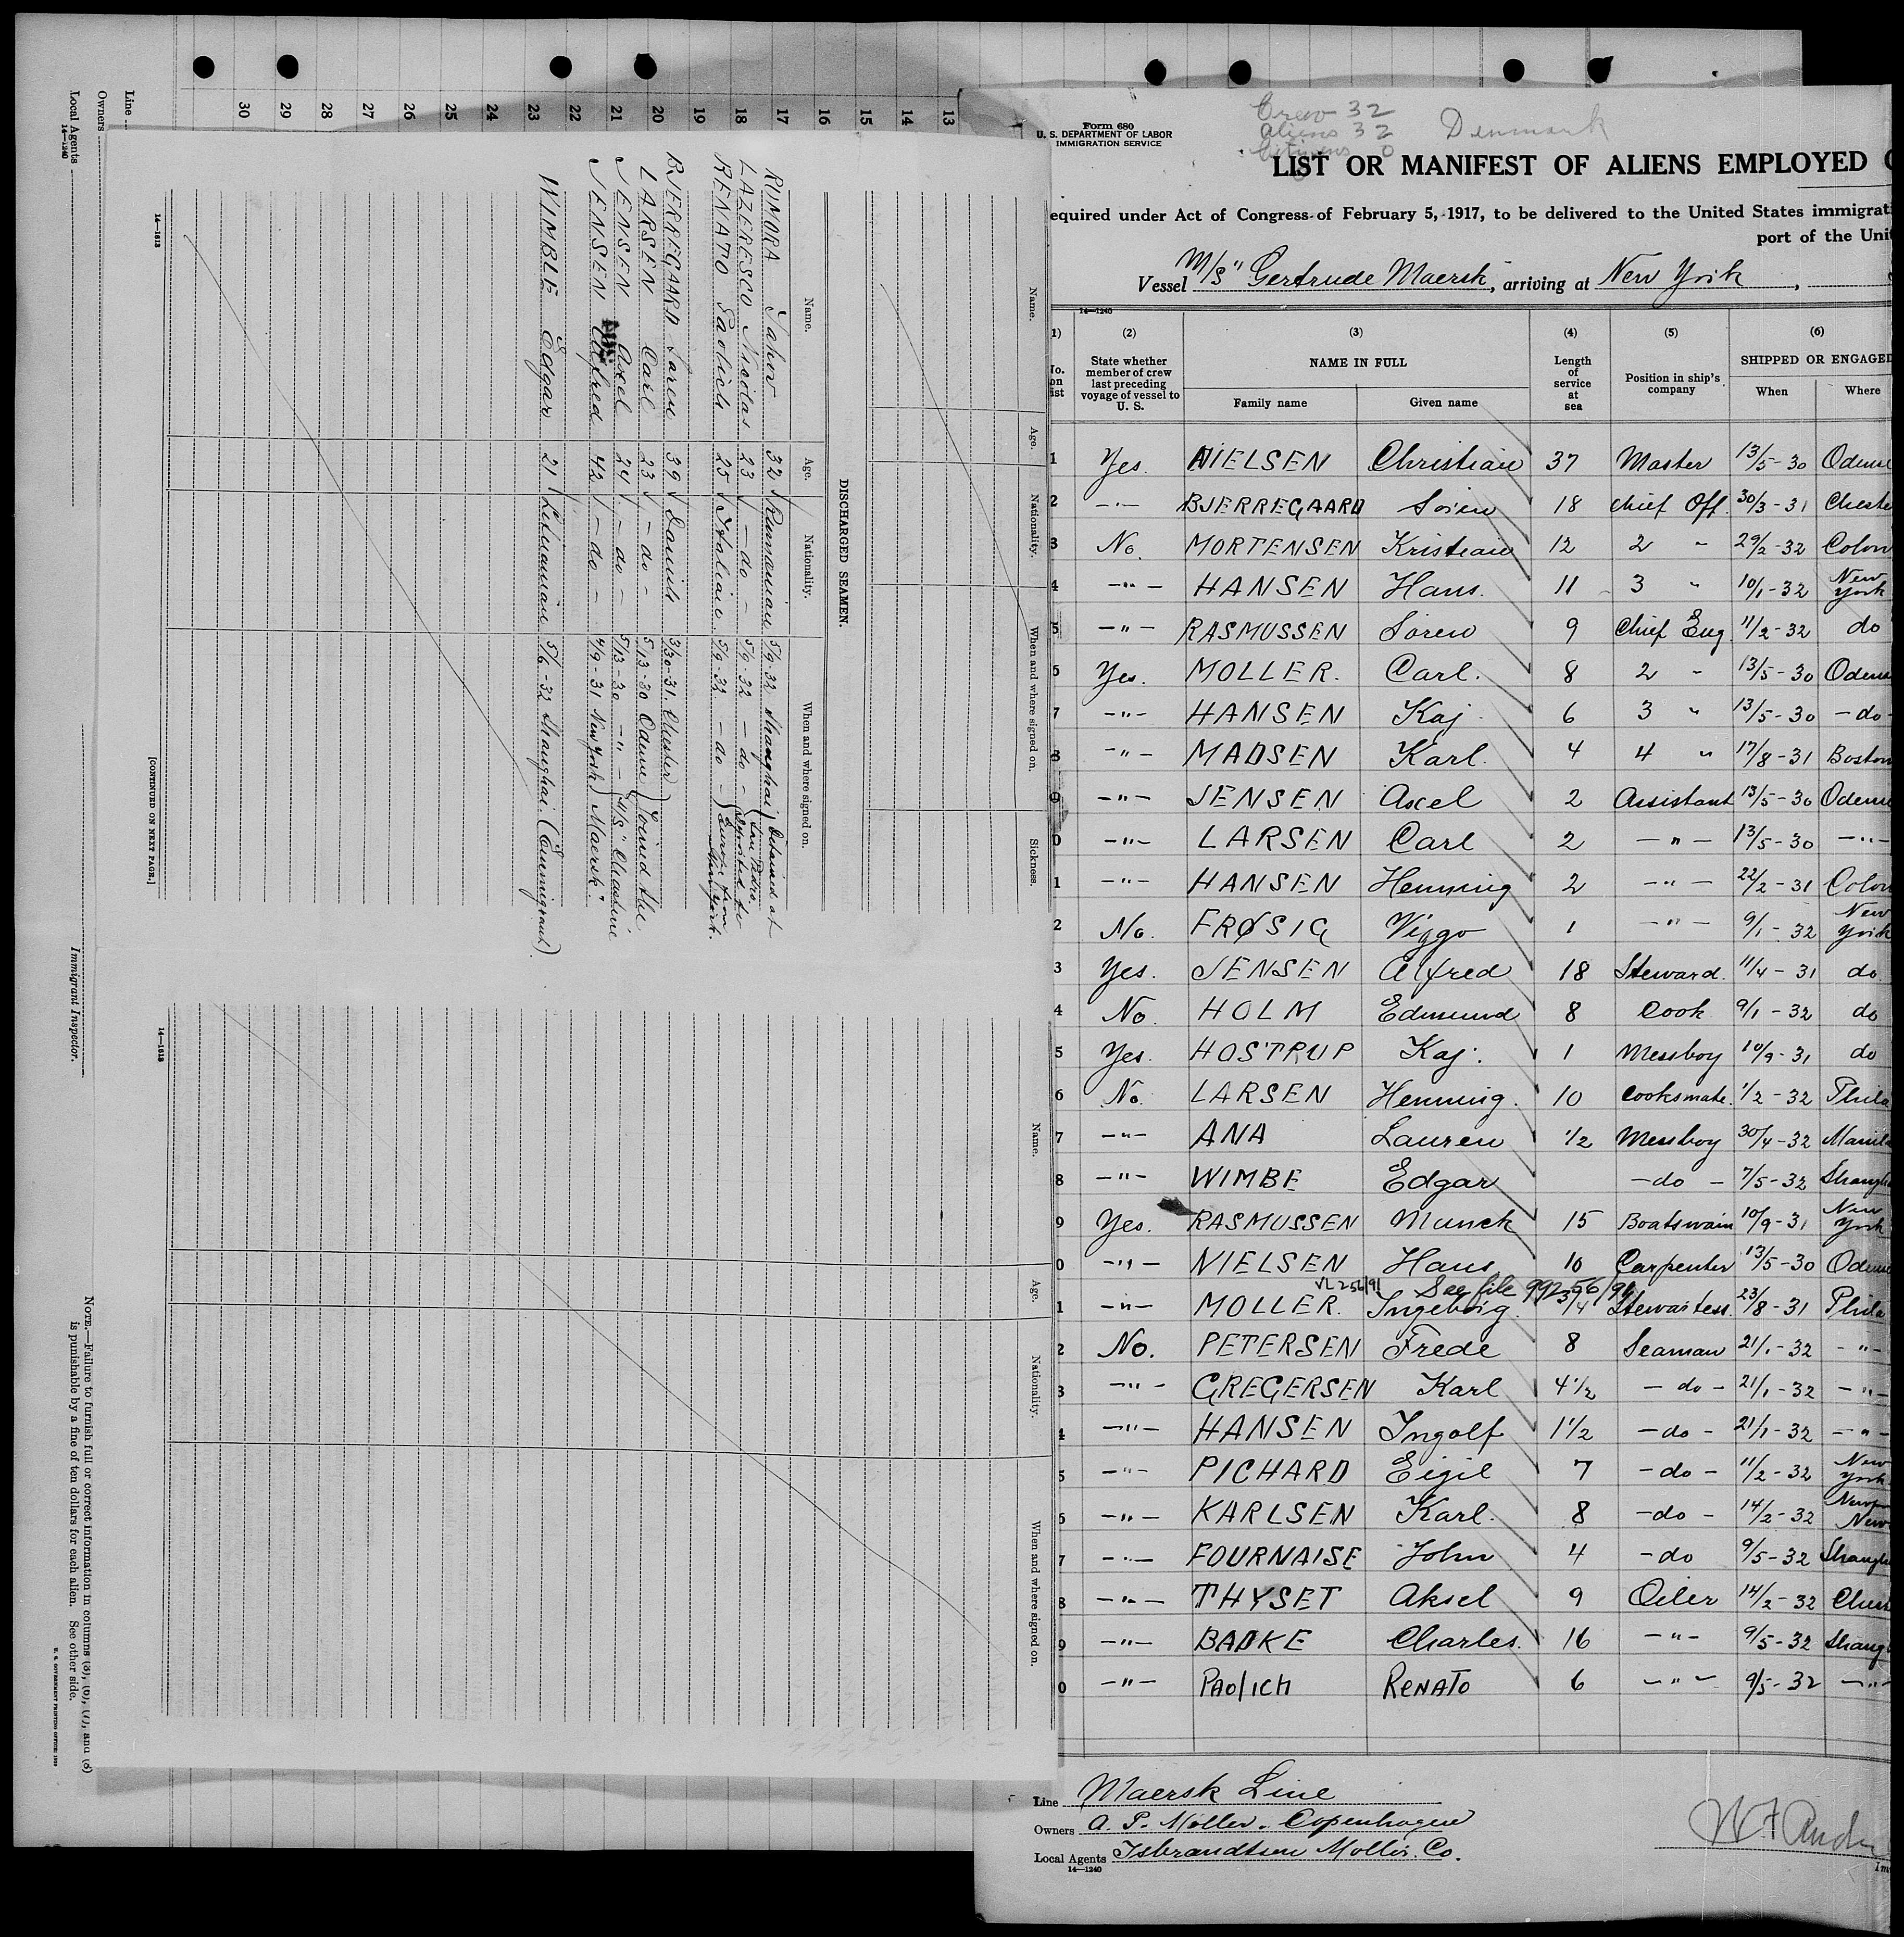 Line
Owners
Local Agents
14—1240
Immigrant Inspector.
NOTE.—Failure to furnish full or correct information in columns (3), (6), (7), and (8)
is punishable by a fine of ten dollars for each alien. See other side.
U. S. GOVERNMENT PRINTING OFFICE
30 29 28 27 26 25 24 23 22 21 20 19 18 17 16 15 14 13
Name. Age. Nationality. When and where signed on. Sickness.
DISCHARGED SEAMEN.
Name. Age. Nationality. When and where signed on.
RUMORA 32 Rumanian 5/9 32 Shanghai Detained at
LAZERESCO Nicolas 23 — do — 5/9-32 — do — San Pedro.
RENATO Paolich 25 Italian 5/9-32 — do — Europe from New York.
BJERREGAARD Soren 39 Danish 3/30-31. Chester
LARSEN Carl 23 — do — 5/13-30 Odense Joined the
JENSEN Axel 24 — do — 5/13-30 — " — M/S "Chastine
JENSEN Alfred 42 — do — 4/9-31 New York Maersk"
WIMBLE Edgar 21 5/6-32 Shanghai
14—1613
[CONTINUED ON NEXT PAGE.]
14—1613
Name. Age. Nationality. When and where signed on.
Form 680
U. S. DEPARTMENT OF LABOR
IMMIGRATION SERVICE
Crew 32
Aliens 32
Citizens 0
Denmark
LIST OR MANIFEST OF ALIENS EMPLOYED
equired under Act of Congress of February 5, 1917, to be delivered to the United States immigrat
port of the Unit
Vessel M/S "Gertrude Maersk, arriving at New York,
14—1240
1) (2) (3) (4) (5) (6)
No. on list State whether member of crew last preceding voyage of vessel to U. S. NAME IN FULL Length of service at sea Position in ship's company SHIPPED OR ENGAGED
Family name Given name When Where
1 Yes. NIELSEN Christian 37 Master 13/5-30 Odense
2 —"— BJERREGAARD Sören 18 Chief Off. 30/3-31 Cheste
3 No. MORTENSEN Kristian 12 2 " 29/2-32 Colon
4 —"— HANSEN Hans. 11 3 " 10/1-32 New York
5 —"— RASMUSSEN Sören 9 Chief Eng. 11/2-32 do
6 Yes. MOLLER. Carl. 8 2 " 13/5-30 Odense
7 —"— HANSEN Kaj 6 3 " 13/5-30 —do—
8 —"— MADSEN Karl. 4 4 " 17/8-31 Boston
9 —"— JENSEN Axel 2 Assistant 13/5-30 Odense
0 —"— LARSEN Carl 2 —"— 13/5-30 —"—
1 —"— HANSEN Henning 2 —"— 22/2-31 Colon
2 No. FRØSIG Viggo 1 —"— 9/1-32 New York
3 Yes. JENSEN Alfred 18 Steward. 11/4-31 do
4 No. HOLM Edmund 8 Cook 9/1-32 do
5 Yes. HOSTRUP Kaj. 1 Messboy 10/9-31 do
6 No. LARSEN Henning. 10 Cooksmate. 1/2-32 Phila
7 —"— ANA Lauren 1/2 Messboy 30/4-32 Manila
8 —"— WIMBE Edgar —do— 7/5-32 Shangh
9 Yes. RASMUSSEN Munck 15 Boatswain 10/9-31 New York
0 —"— NIELSEN Hans 10 Carpenter 13/5-30 Odense
VL 256/91 See file 99256/96
1 —"— MOLLER. Ingeborg. 3/4 Stewartess. 23/8-31 Phila
2 No. PETERSEN Frede 8 Seaman 21/1-32 —"—
3 —"— GREGERSEN Karl 4 1/2 —do— 21/1-32 —"—
4 —"— HANSEN Ingolf 1 1/2 —do— 21/1-32 —"—
5 —"— PICHARD Eigil 7 —do— 11/2-32 New York
6 —"— KARLSEN Karl. 8 —do— 14/2-32 Newpo New
7 —"— FOURNAISE John 4 —do 9/5-32 Shangha
8 —"— THYSET Aksel 9 Oiler 14/2-32 Ches
9 —"— BADKE Charles. 16 —"— 9/5-32 Shang
0 —"— PAOlICH RENATO 6 —"— 9/5-32 —"—
Line Maersk Line
Owners A. P. Möller. Copenhague
Local Agents Isbrandtsen Moller. Co.
14—1240